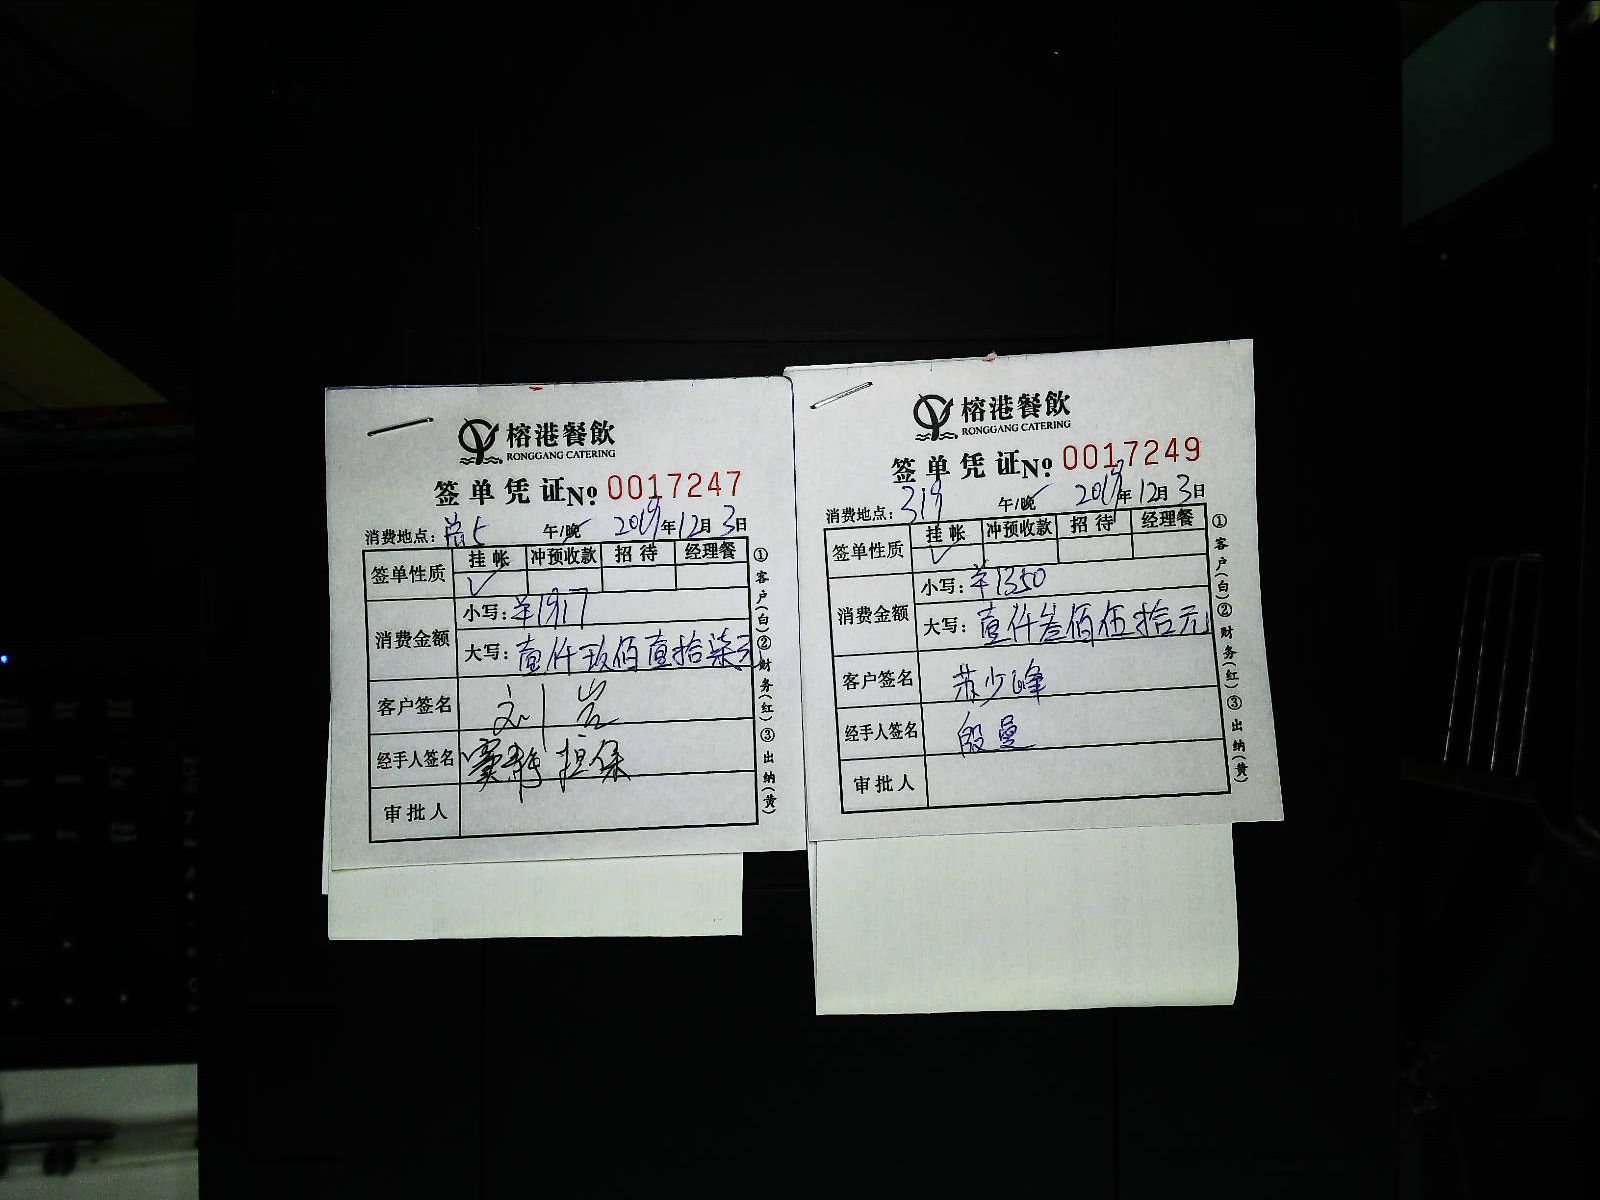 榕港餐飲
RONGGANG CATERING
签单凭证№ 0017247
消费地点： 午/晚✓ 2019年12月3日
签单性质 挂帐 冲预收款 招待 经理餐
✓
消费金额 小写：¥1917
大写：壹仟玖佰壹拾柒元
客户签名 刘岩
经手人签名 窦静 担保
审批人
①客户(白)②财务(红)③出纳(黄)
榕港餐飲
RONGGANG CATERING
签单凭证№ 0017249
消费地点：319 午/晚✓ 2019年12月3日
签单性质 挂帐 冲预收款 招待 经理餐
✓
消费金额 小写：¥1350
大写：壹仟叁佰伍拾元
客户签名 苏少峰
经手人签名 殷曼
审批人
①客户(白)②财务(红)③出纳(黄)